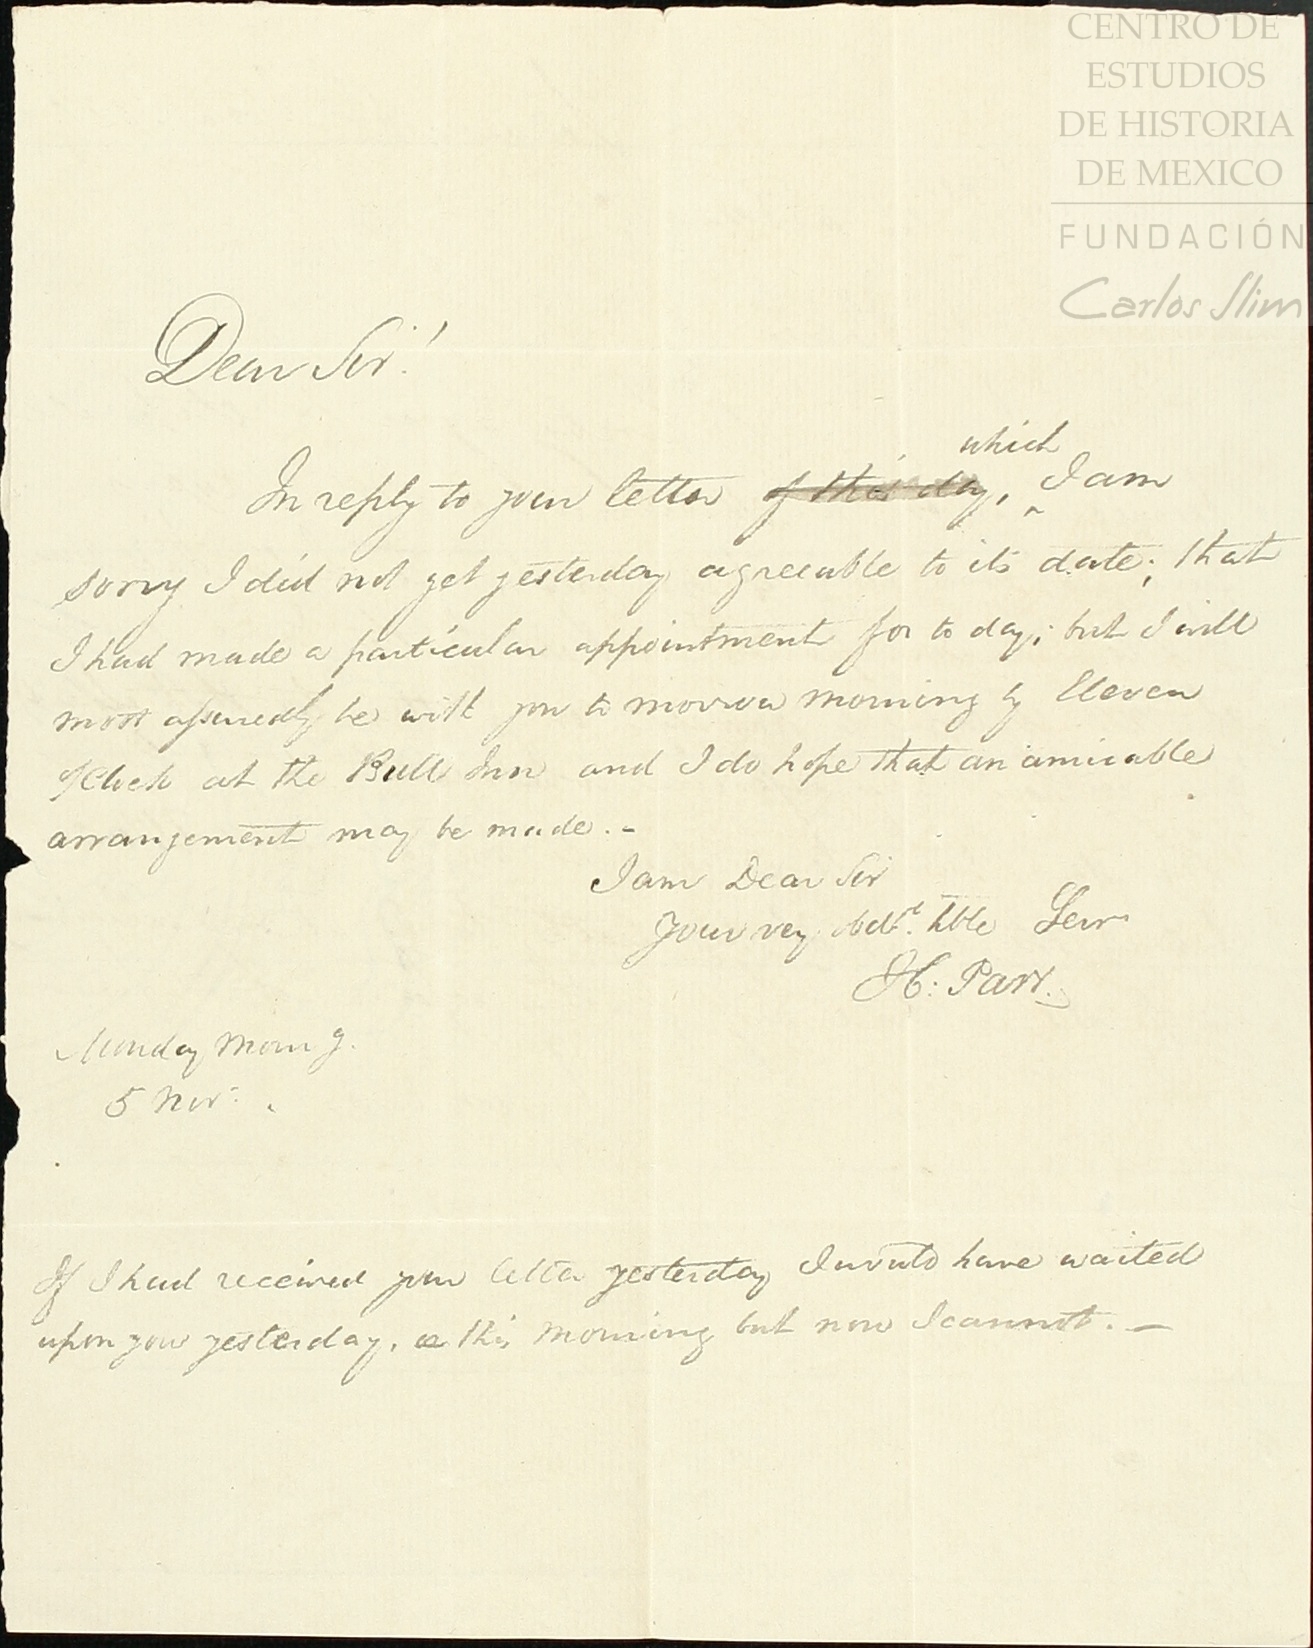 CENTRO DE
ESTUDIOS
DE HISTORIA
DE MEXICO
FUNDACIÓN
Carlos Slim
Dear Sir!
which
In reply to your letter of this day, ^ I am
sorry I did not get yesterday agreeable to its date; that
I had made a particular appointment for to day; but I will
most assuredly be with you to morrow morning by Eleven
oClock at the Bull Inn and I do hope that an amicable
arrangement may be made. -
I am Dear Sir
Your very obdt. hble Serv
H: Parr.
Monday Morng.
5 Nov.
If I had received your letter yesterday I would have waited
upon you yesterday, or this morning but now I cannot. -